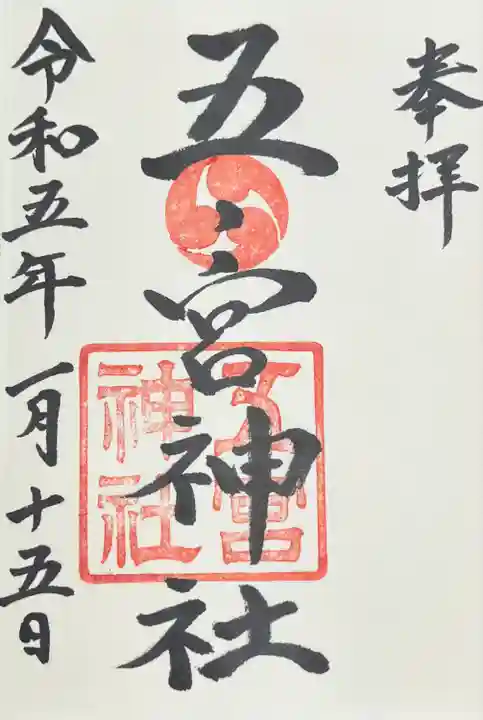 奉拝
五宮神社
五宮神社
令和五年一月十五日